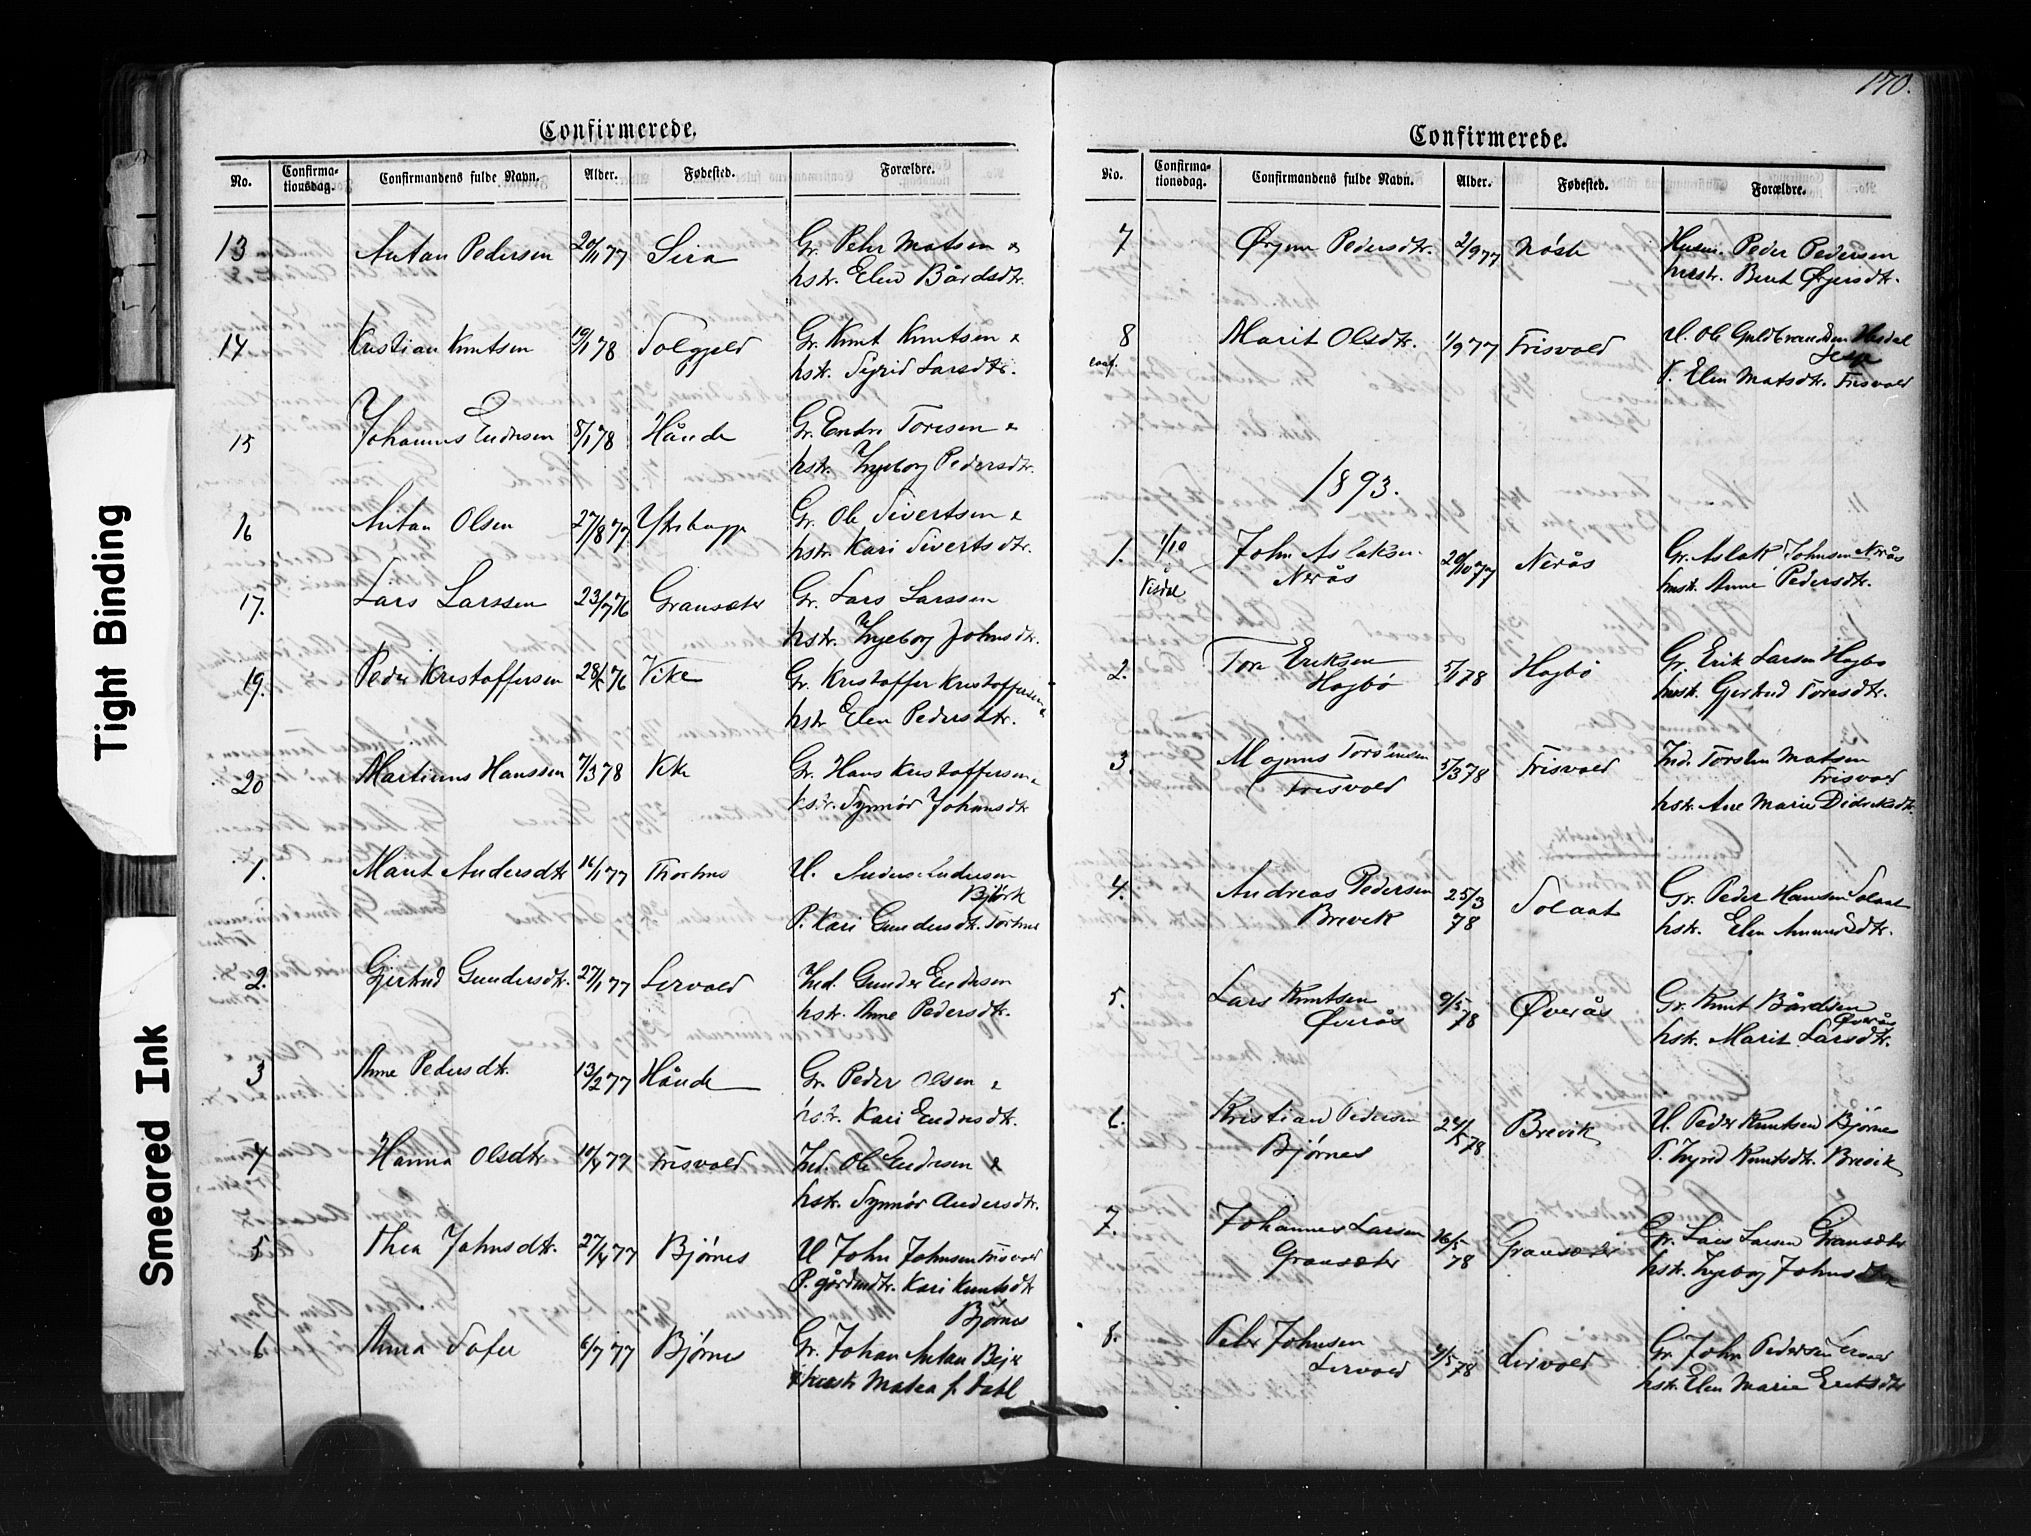 170.
Tight Binding
Smeared Ink
Confirmerede.
No. Confirma-tionsdag. Confirmandens fulde Navn. Alder. Fødested. Forældre.
13 Antan Pedersen 20/11 77 Sira Gr. Pehr Matsen &
hstr. Elen Bårdsdtr.
14 Kristian Knutsen 19/1 78 Solgjeld Gr. Knut Knutsen &
hstr. Sigrid Larsdtr.
15 Johannes Endresen 8/1 78 Hånde Gr. Endre Toresen &
hstr. Ingeborg Pedersdtr.
16 Antan Olsen 27/8 77 Gr. Ole Sivertsen &
hstr. Kari Sivertsdtr.
17. Lars Larssen 23/7 76 Gransæter Gr. Lars Larssen
hstr. Ingeborg Johnsdtr.
19. Peder Kristoffersen 28/ 76 Vike Gr. Kristoffer Kristoffersen &
hstr. Elen Pedersdtr.
20 Martinus Hanssen 7/3 78 Vike Gr. Hans Kristoffersen &
hstr. Synnør Johansdtr
1. Marit Andersdtr 16/1 77 Thorhus U. Anders Andersen
Björk
P. Kari Gundersdtr. Torhus
2. Gjertrud Gundersdtr. 27/1 77 Lervold Ind. Gunder Endresen
hstr. Anne Pedersdtr.
3 Anne Pedersdtr. 13/2 77 Hånde Gr. Peder Olsen &
hstr. Kari Endresdtr.
4 Hanna Olsdtr 19/4 77 Frisvold Ind. Ole Endresen &
hstr. Synnør Andersdtr.
5 Thea Johnsdtr. 27/4 77 Bjørnes U John Johnsen Frisvold
P. gårdmdtr. Kari Knutsdt
Bjørnes
6 Anna Sofie 6/7 77 Bjørnes Gr. Johan Antan
hustr Matea f. Dahl
Confirmerede.
No. Confirma-tionsdag. Confirmandens fulde Navn. Alder. Fødested. Forældre.
7 Ørjenn Pedersdtr. 2/9 77 Nöste Husm. Peder Pedersen
hustr. Beret Ørjersdtr.
8 Marit Olsdtr. 1/9 77 Frisvold U. Ole Guldbrandsen
conf.
P. Elen Matsdtr. Frisvold
1893.
1. 1/10 John Aslaksen 20/10 77 Nerås Gr. Aslak Johnsen Nerås
Visdal Nerås hustr. Anne Pedersdtr.
2. Tore Eriksen 5/1 78 Hogbø Gr. Erik Larsen Hogbø
Hogbø hustr. Gjertrud Toresdtr.
3. Magnus Torstensen 5/3 78 Frisvold Ind. Torsten Matsen
Frisvold Frisvold
hstr. Ane Marie Didriksdtr.
4. Andreas Pedersen 25/3 Solaat Gr. Peder Hansen Solaat
Brevik 78 hstr. Elen Amundsdtr.
5. Lars Knutsen 9/5 Øverås Gr. Knut Bårdsen
Øverås 78 Øverås
hstr. Marit Larsdtr.
6. Kristian Pedersen 24/5 Brevik U. Peder Knutsen Bjørnes
Bjørnes 78 P. Ingrid Knutsdtr. Brevik
7. Johannes Larsen 16/5 Gransæter Gr. Lars Larsen Gransæter
Gransæter 78 hstr. Ingeborg Johns
8. Peder Johnsen 4/5 Lervold Gr. John Pedersen Lervold
Lervold 78 hstr. Elen Marie Eriksdtr